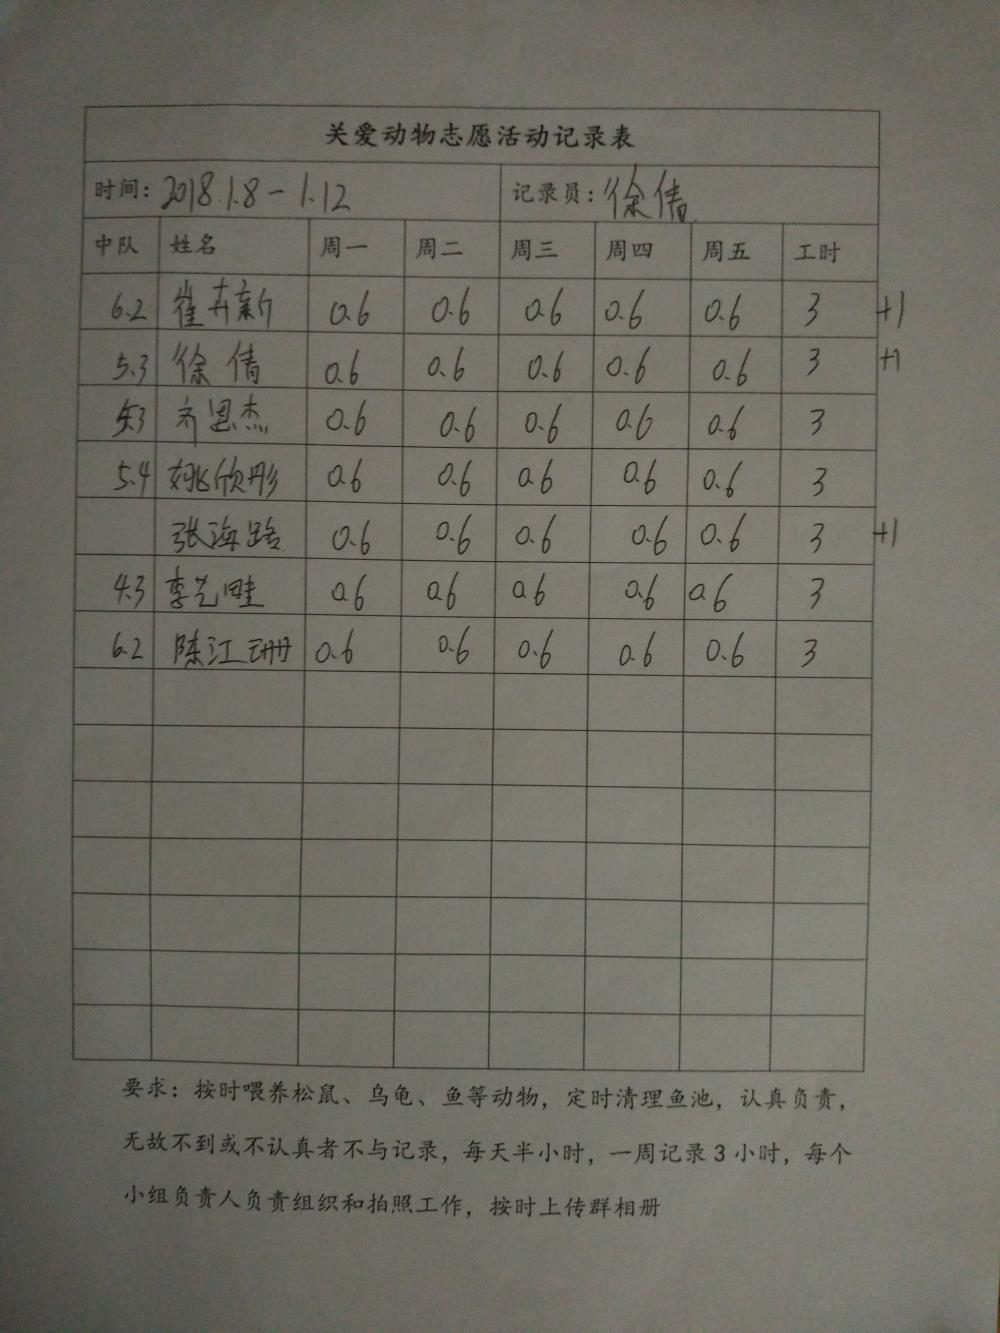 关爱动物志愿活动记录表
时间：2018.1.8－1.12 记录员：徐倩
中队 姓名 周一 周二 周三 周四 周五 工时
6.2 崔卉新 0.6 0.6 0.6 0.6 0.6 3 +1
5.3 徐倩 0.6 0.6 0.6 0.6 0.6 3 +1
5.3 齐思杰 0.6 0.6 0.6 0.6 0.6 3
5.4 姚欣彤 0.6 0.6 0.6 0.6 0.6 3
张海路 0.6 0.6 0.6 0.6 0.6 3 +1
4.3 李艺畦 0.6 0.6 0.6 0.6 0.6 3
6.2 陈江珊 0.6 0.6 0.6 0.6 0.6 3
要求：按时喂养松鼠、乌龟、鱼等动物，定时清理鱼池，认真负责，
无故不到或不认真者不与记录，每天半小时，一周记录3小时，每个
小组负责人负责组织和拍照工作，按时上传群相册